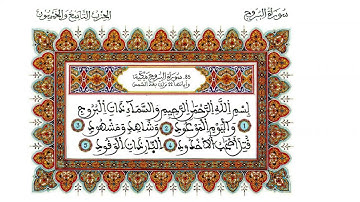 سورة البروج
الحزب التاسع والخمسون
85. سورة البروج مكية
وآياتها 22 نزلت بعد الشمس
بسم الله الرحمن الرحيم والسماء ذات البروج
1 واليوم الموعود 2 وشاهد ومشهود 3
قتل أصحاب الأخدود 4 النار ذات الوقود 5